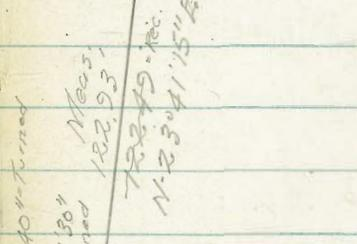 40"-Turned
'30"
Meas.
122.93'
122.49'-Rec.
N-23°41'15"E